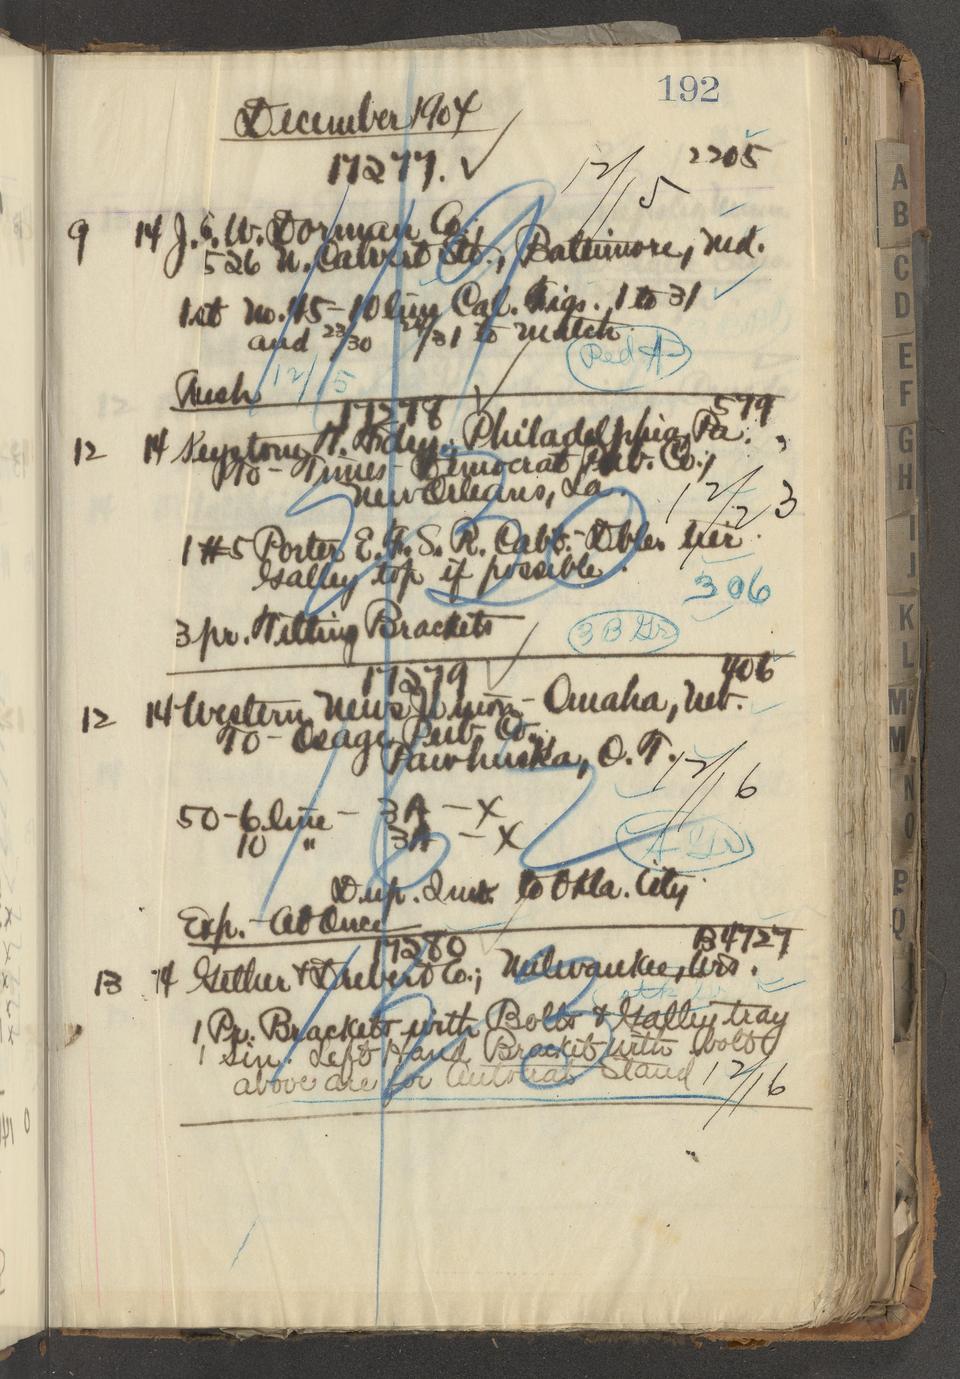 192
December 1904
17277. ✓
2205
12/15
9 14 J. F. W. Dorman Co.,
526 N. Calvert St., Baltimore, Md.
1 set No. 45-10 line Cal. Figs. 1 to 31
and 23/30 24/31 to match
Red A
Rush 12/15
17278 579
12 14 Keystone T. Fdry. Philadelphia, Pa.
To- Times- Democrat Pub. Co.,
New Orleans, La.
12/23
1 #5 Porter E. F. S. R. Cabt.- Dble. tier.
Galley top if possible.
306
3 pr. Tilting Brackets
3 B Gr
17279 406
12 14 Western News Union- Omaha, Neb.
To- Osage Pub. Co.,
Pawhuska, O. T.
12/16
50-6 line - 3A - X
10 " 3A - X
A Gr
Dup. Inv. to Okla. City
Exp. - At Once
17280 B4727
13 14 Gether & Drebert Co.; Milwaukee, Wis.
1 Pr. Brackets with Bolts & Galley tray
1 Sin. Left Hand Bracket with bolts
above are for Cabinet Stand
12/16
A
B
C
D
E
F
G
H
I
J
K
L
M
Mc
N
O
P
Q